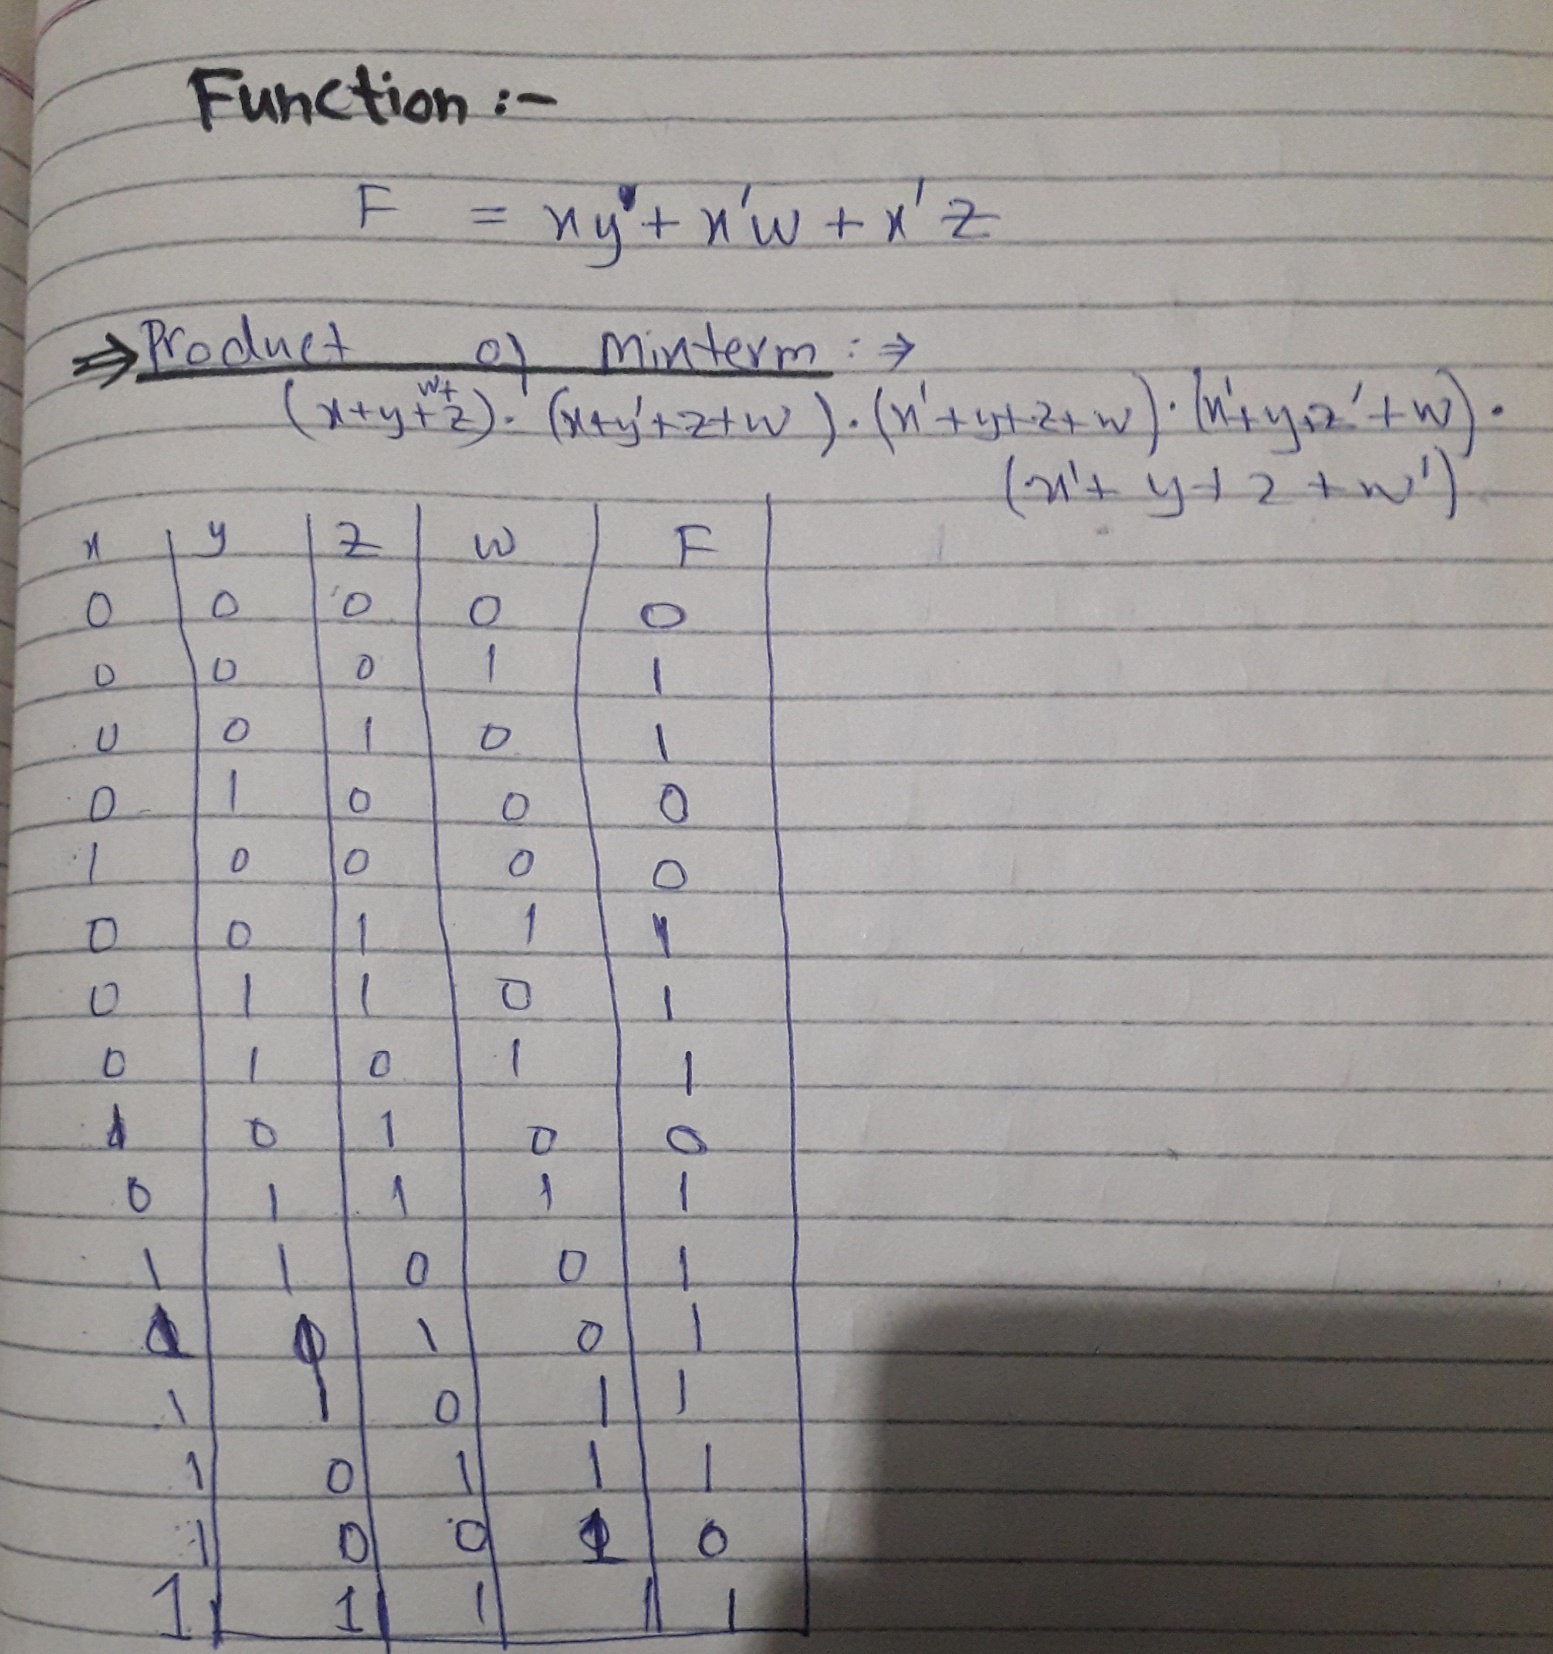 Function :-
F = xy + x'w + x'z
⇒ Product of Minterm : ⇒
(x+y+w+z). (x+y'+z+w).(x'+y+z+w).(x'+y+z'+w).
(x'+y+z+w')
x y z w F
0 0 0 0 0
0 0 0 1 1
0 0 1 0 1
0 1 0 0 0
1 0 0 0 0
0 0 1 1 1
0 1 1 0 1
0 1 0 1 1
1 0 1 0 0
0 1 1 1 1
1 1 0 0 1
1 1 1 0 1
1 1 0 1 1
1 0 1 1 1
1 0 0 1 0
1 1 1 1 1